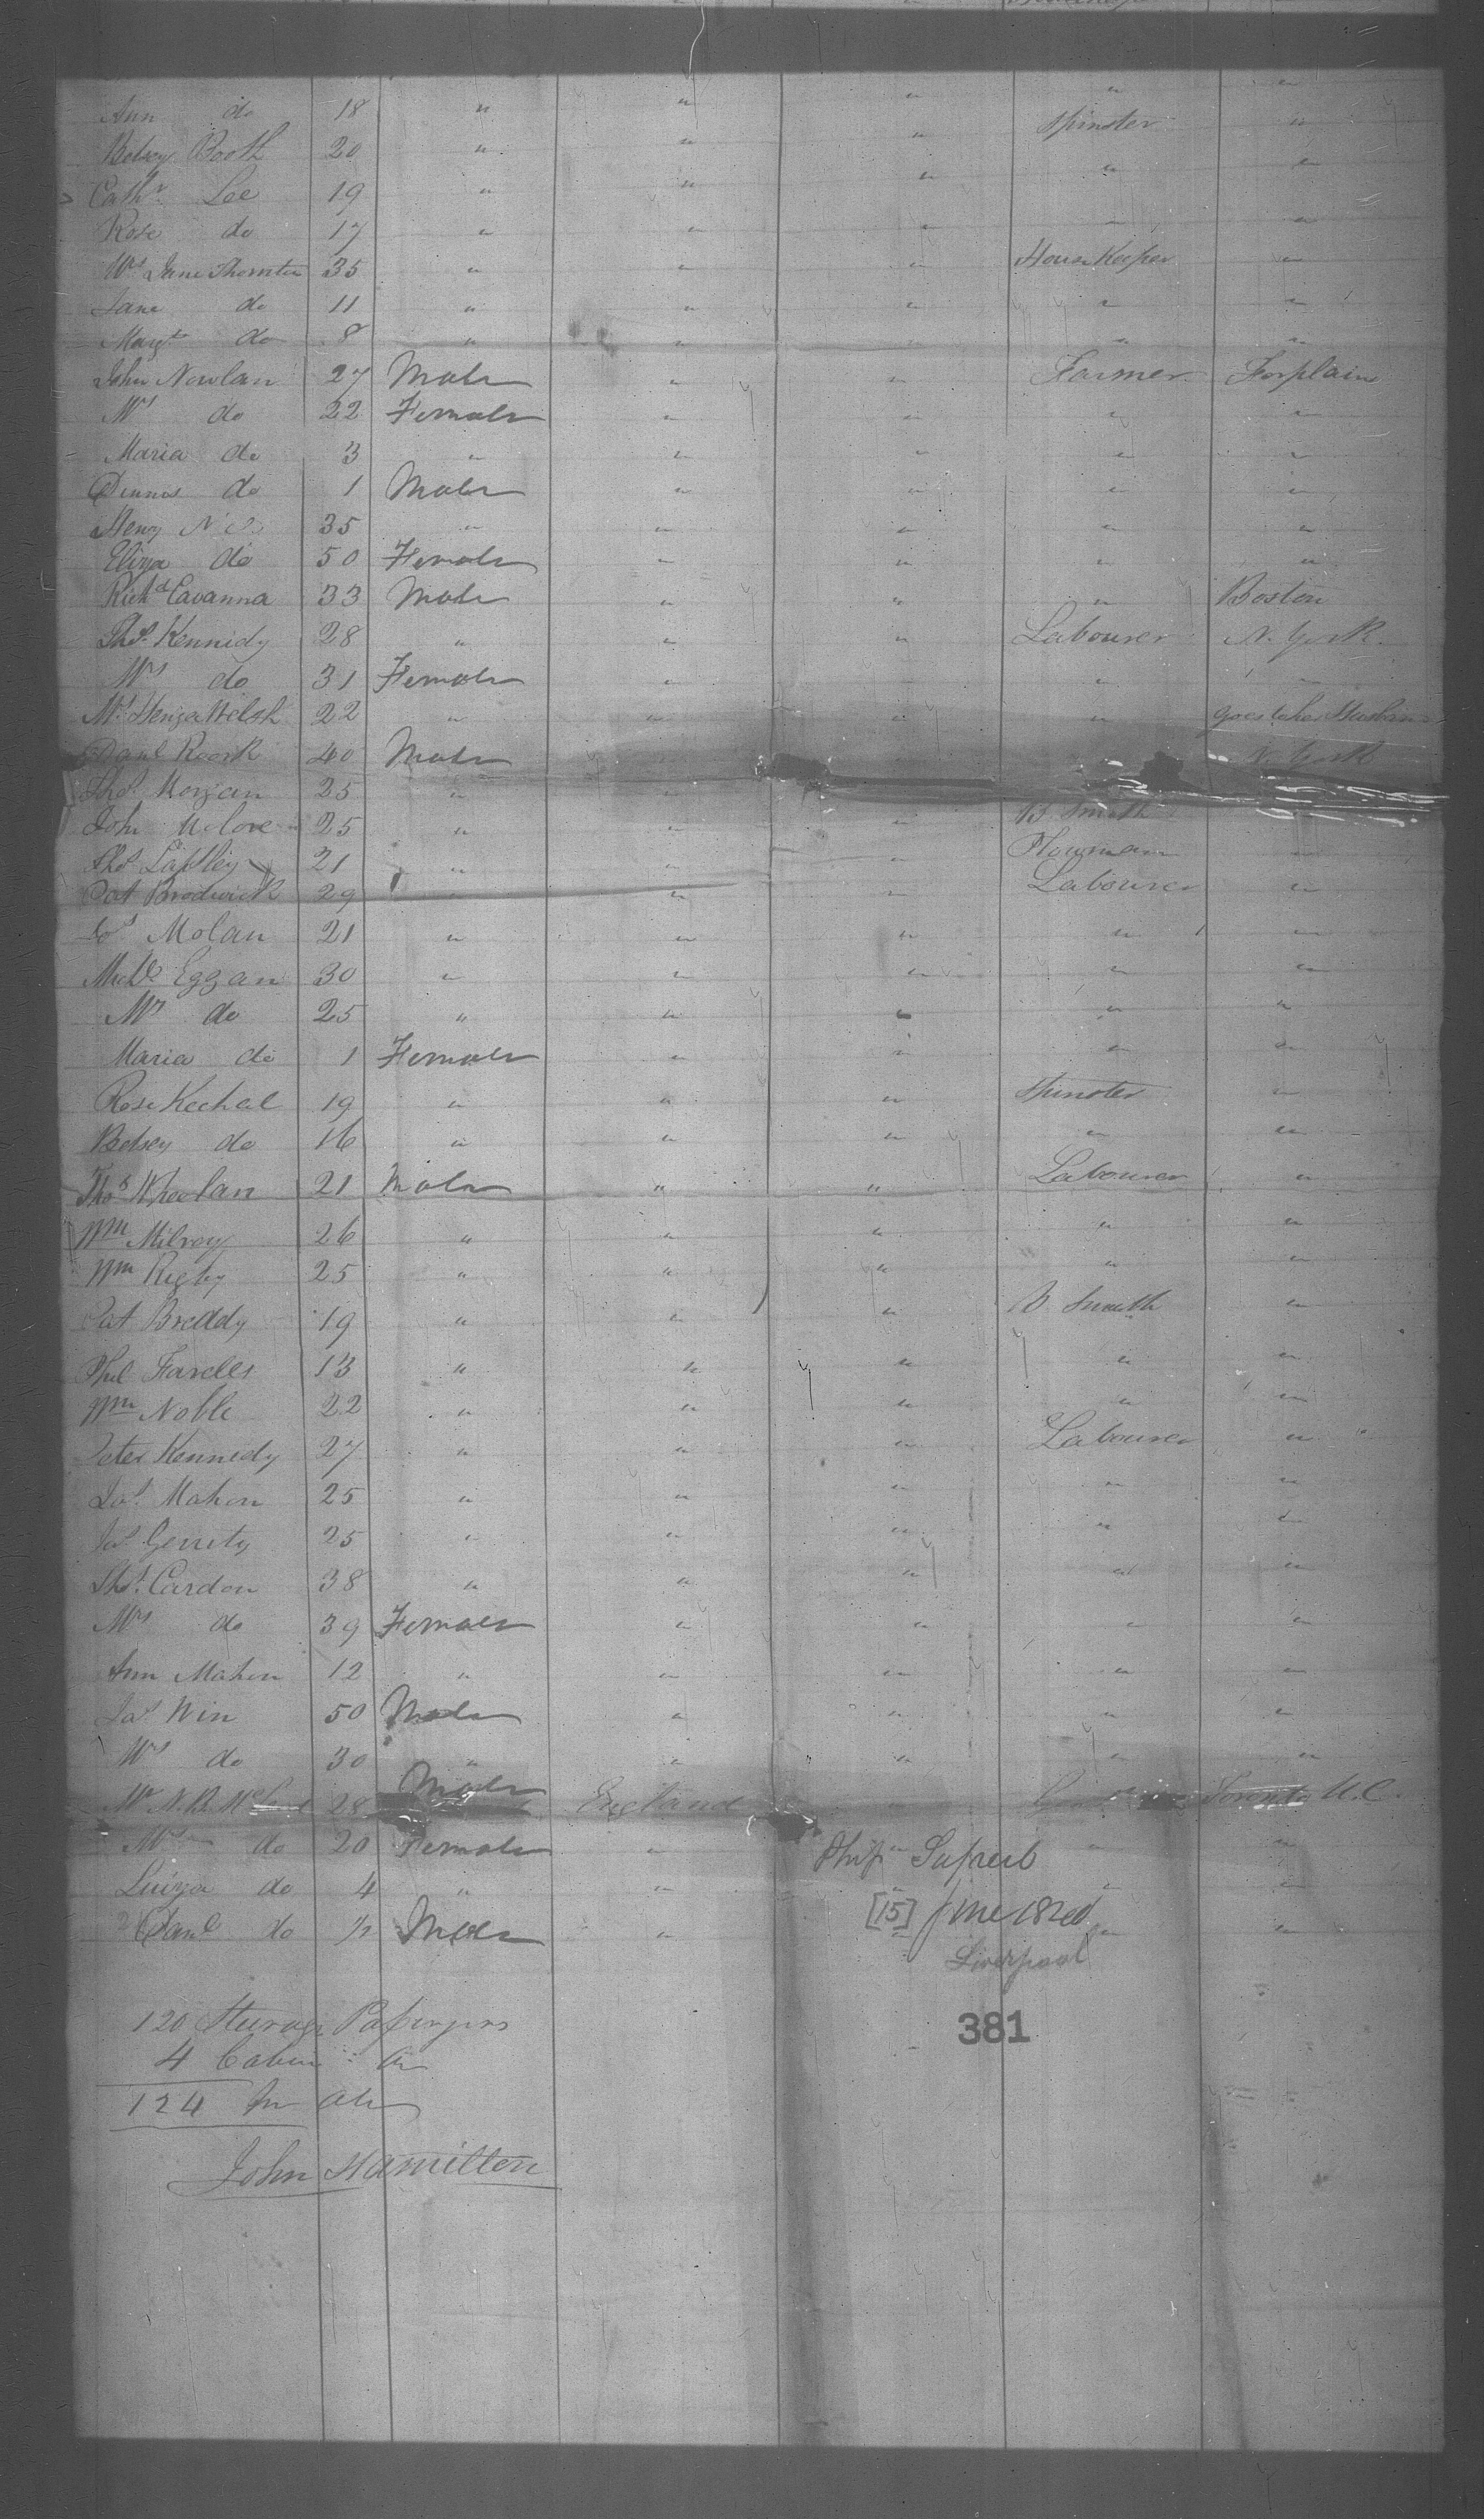 Ann do 18 " " " " "
Betsey Booth 20 " " " Spinster "
Cathr Lee 19 " " " " "
Rose do 17 " " " " "
Mrs Jane Thornton 35 " " " House Keeper "
Jane do 11 " " " " "
Margt do 8 " " " " "
John Nowlan 27 Male " " Farmer Forplain
Mrs do 22 Female " " " "
Maria do 3 " " " " "
Dennis do 1 Male " " " "
Henry 35 " " " " "
Eliza do 50 Female " " " "
Richd Cavanna 33 Male " " " Boston
Thos Kennidy 28 " " " Labourer N. York
Mrs do 31 Female " " " "
Mrs Welsh 22 " " " " goes to her Husban
Danl Roork 40 Male N. York
Thos Morgan 25 " "
John 25 " " " B. Smith
Thos Lapsley 21 " " " Plowman "
Pat Brodwick 29 " " " Labourer "
Jos Molan 21 " " " " "
Michl Eggan 30 " " " " "
Mrs do 25 " " " " "
Maria do 1 Female " " " "
Rose Kechal 19 " " " Spinster "
Betsey do 16 " " " " "
Thos Wheelan 21 Male " " Labourer "
Wm Milroy 26 " " " " "
Wm Rigby 25 " " " " "
Pat Breddy 19 " " " B. Smith "
Phil Farelly 13 " " " " "
Wm Noble 22 " " " " "
Peter Kennedy 27 " " " Labourer "
Jas Mahon 25 " " " " "
Jas Gerrity 25 " " " " "
Thos Cardon 38 " " " " "
Mrs do 39 Female " " " "
Ann Mahon 12 " " " " "
Jas Win 50 Male " " " "
Mrs do 30 " " " " "
Mr N. B. 28 Male England " Toronto U.C.
Mrs do 20 Female " " "
Luiza do 4 " " " " "
Danl do 1/2 Male " " " "
Ship Superb
[15] June 1820
Liverpool
381
120 Sturage Passengers
4 Cabin do
124 In all
John Hamilton